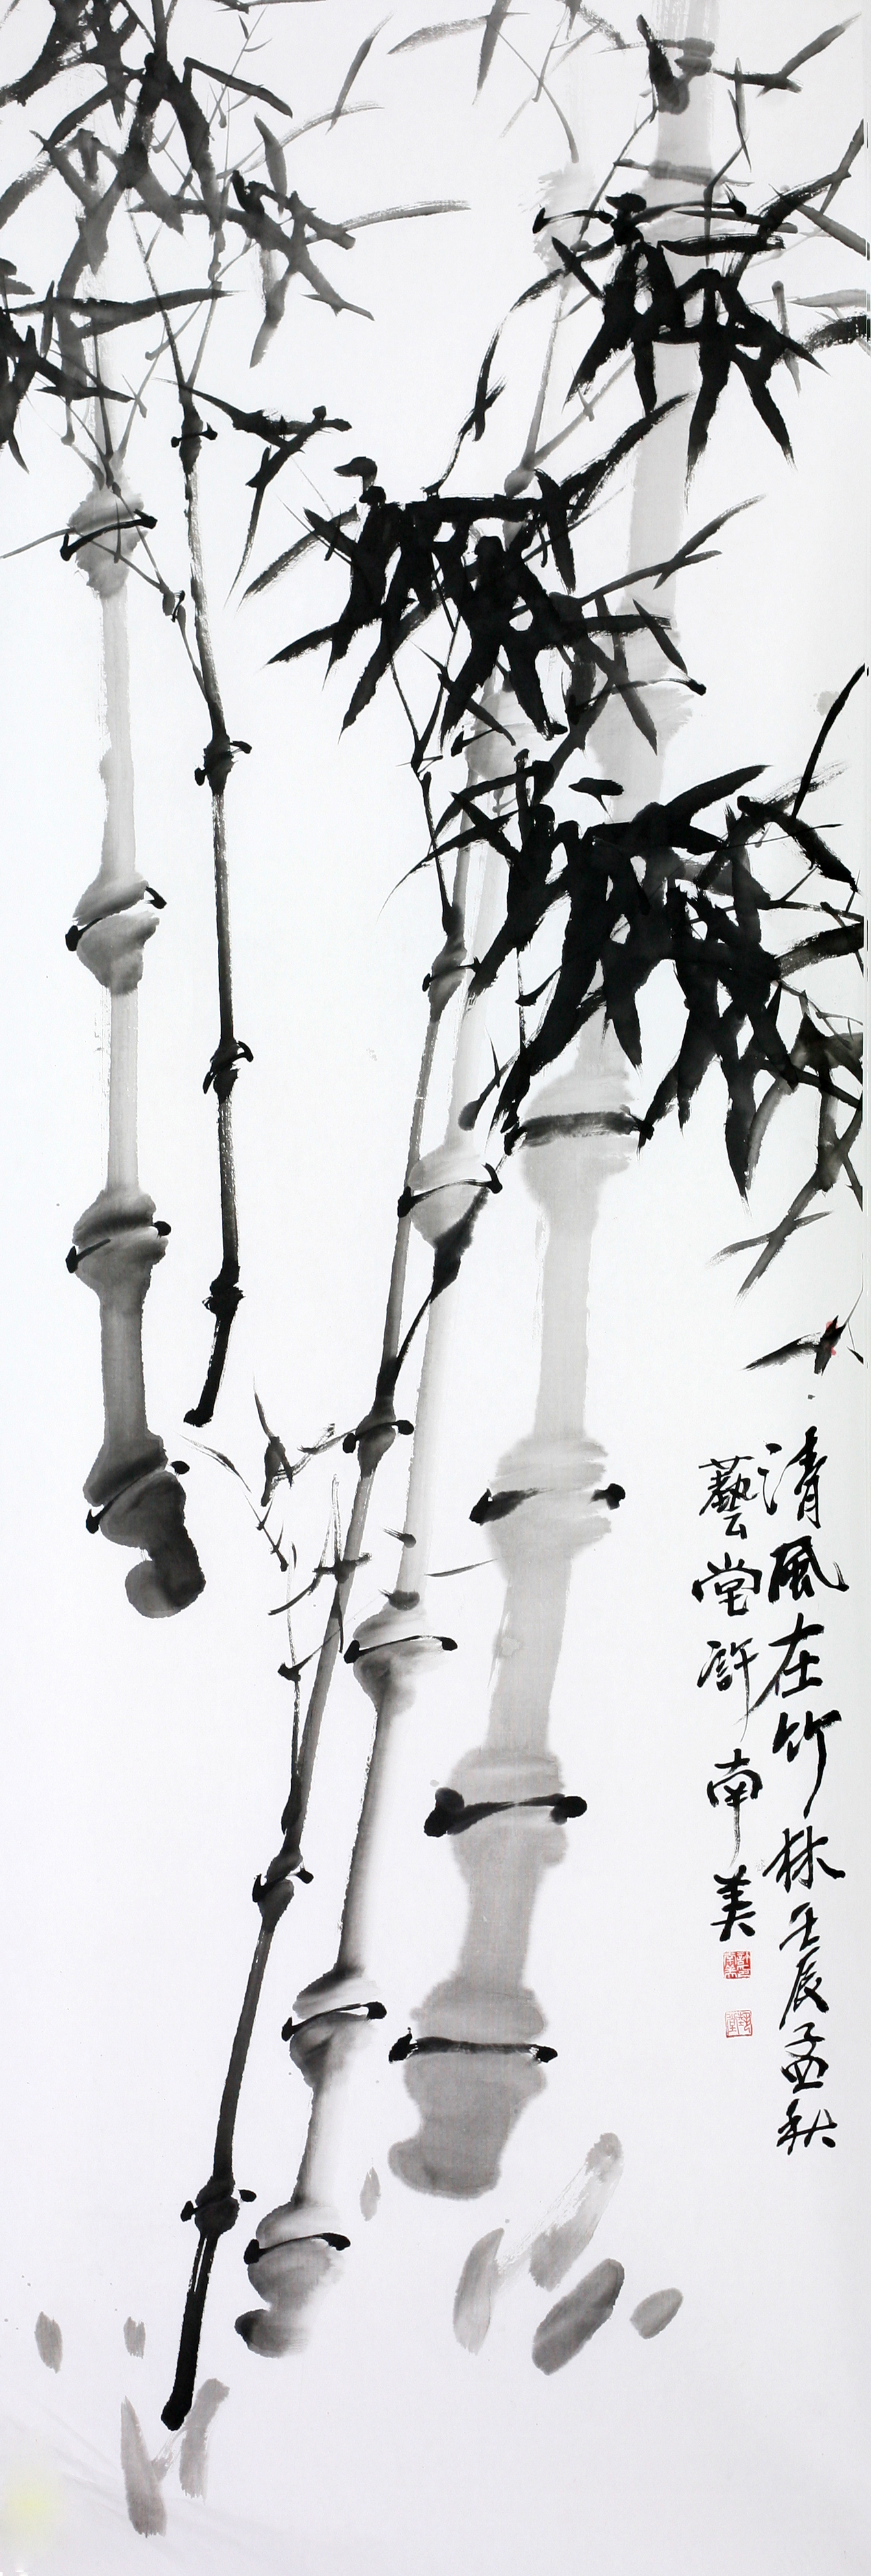 清風在竹林壬辰孟秋
藝堂許南美